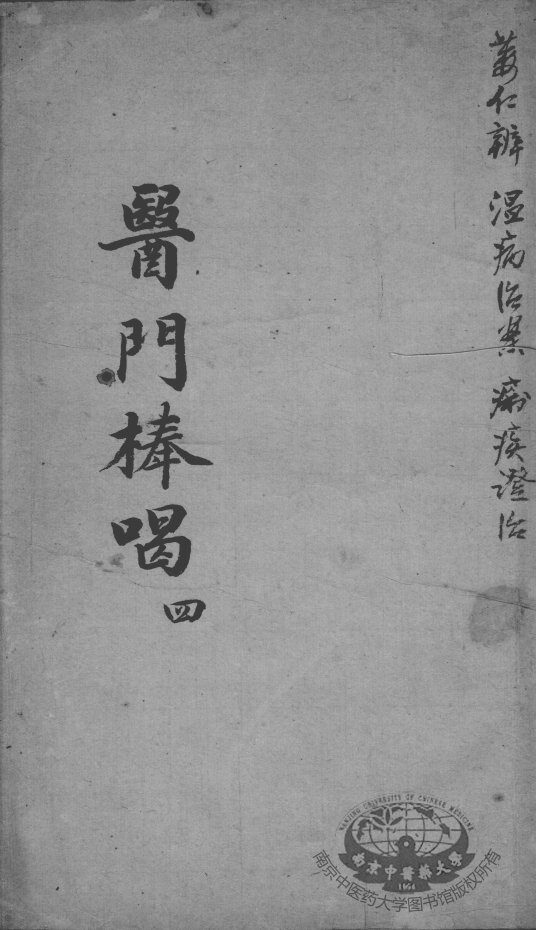 蔞仁辨 温病治案 痢疾證治
醫門棒喝
四
NANJING UNIVERSITY OF CHINESE MEDICINE
南京中醫藥大學
1954
南京中医药大学图书馆版权所有